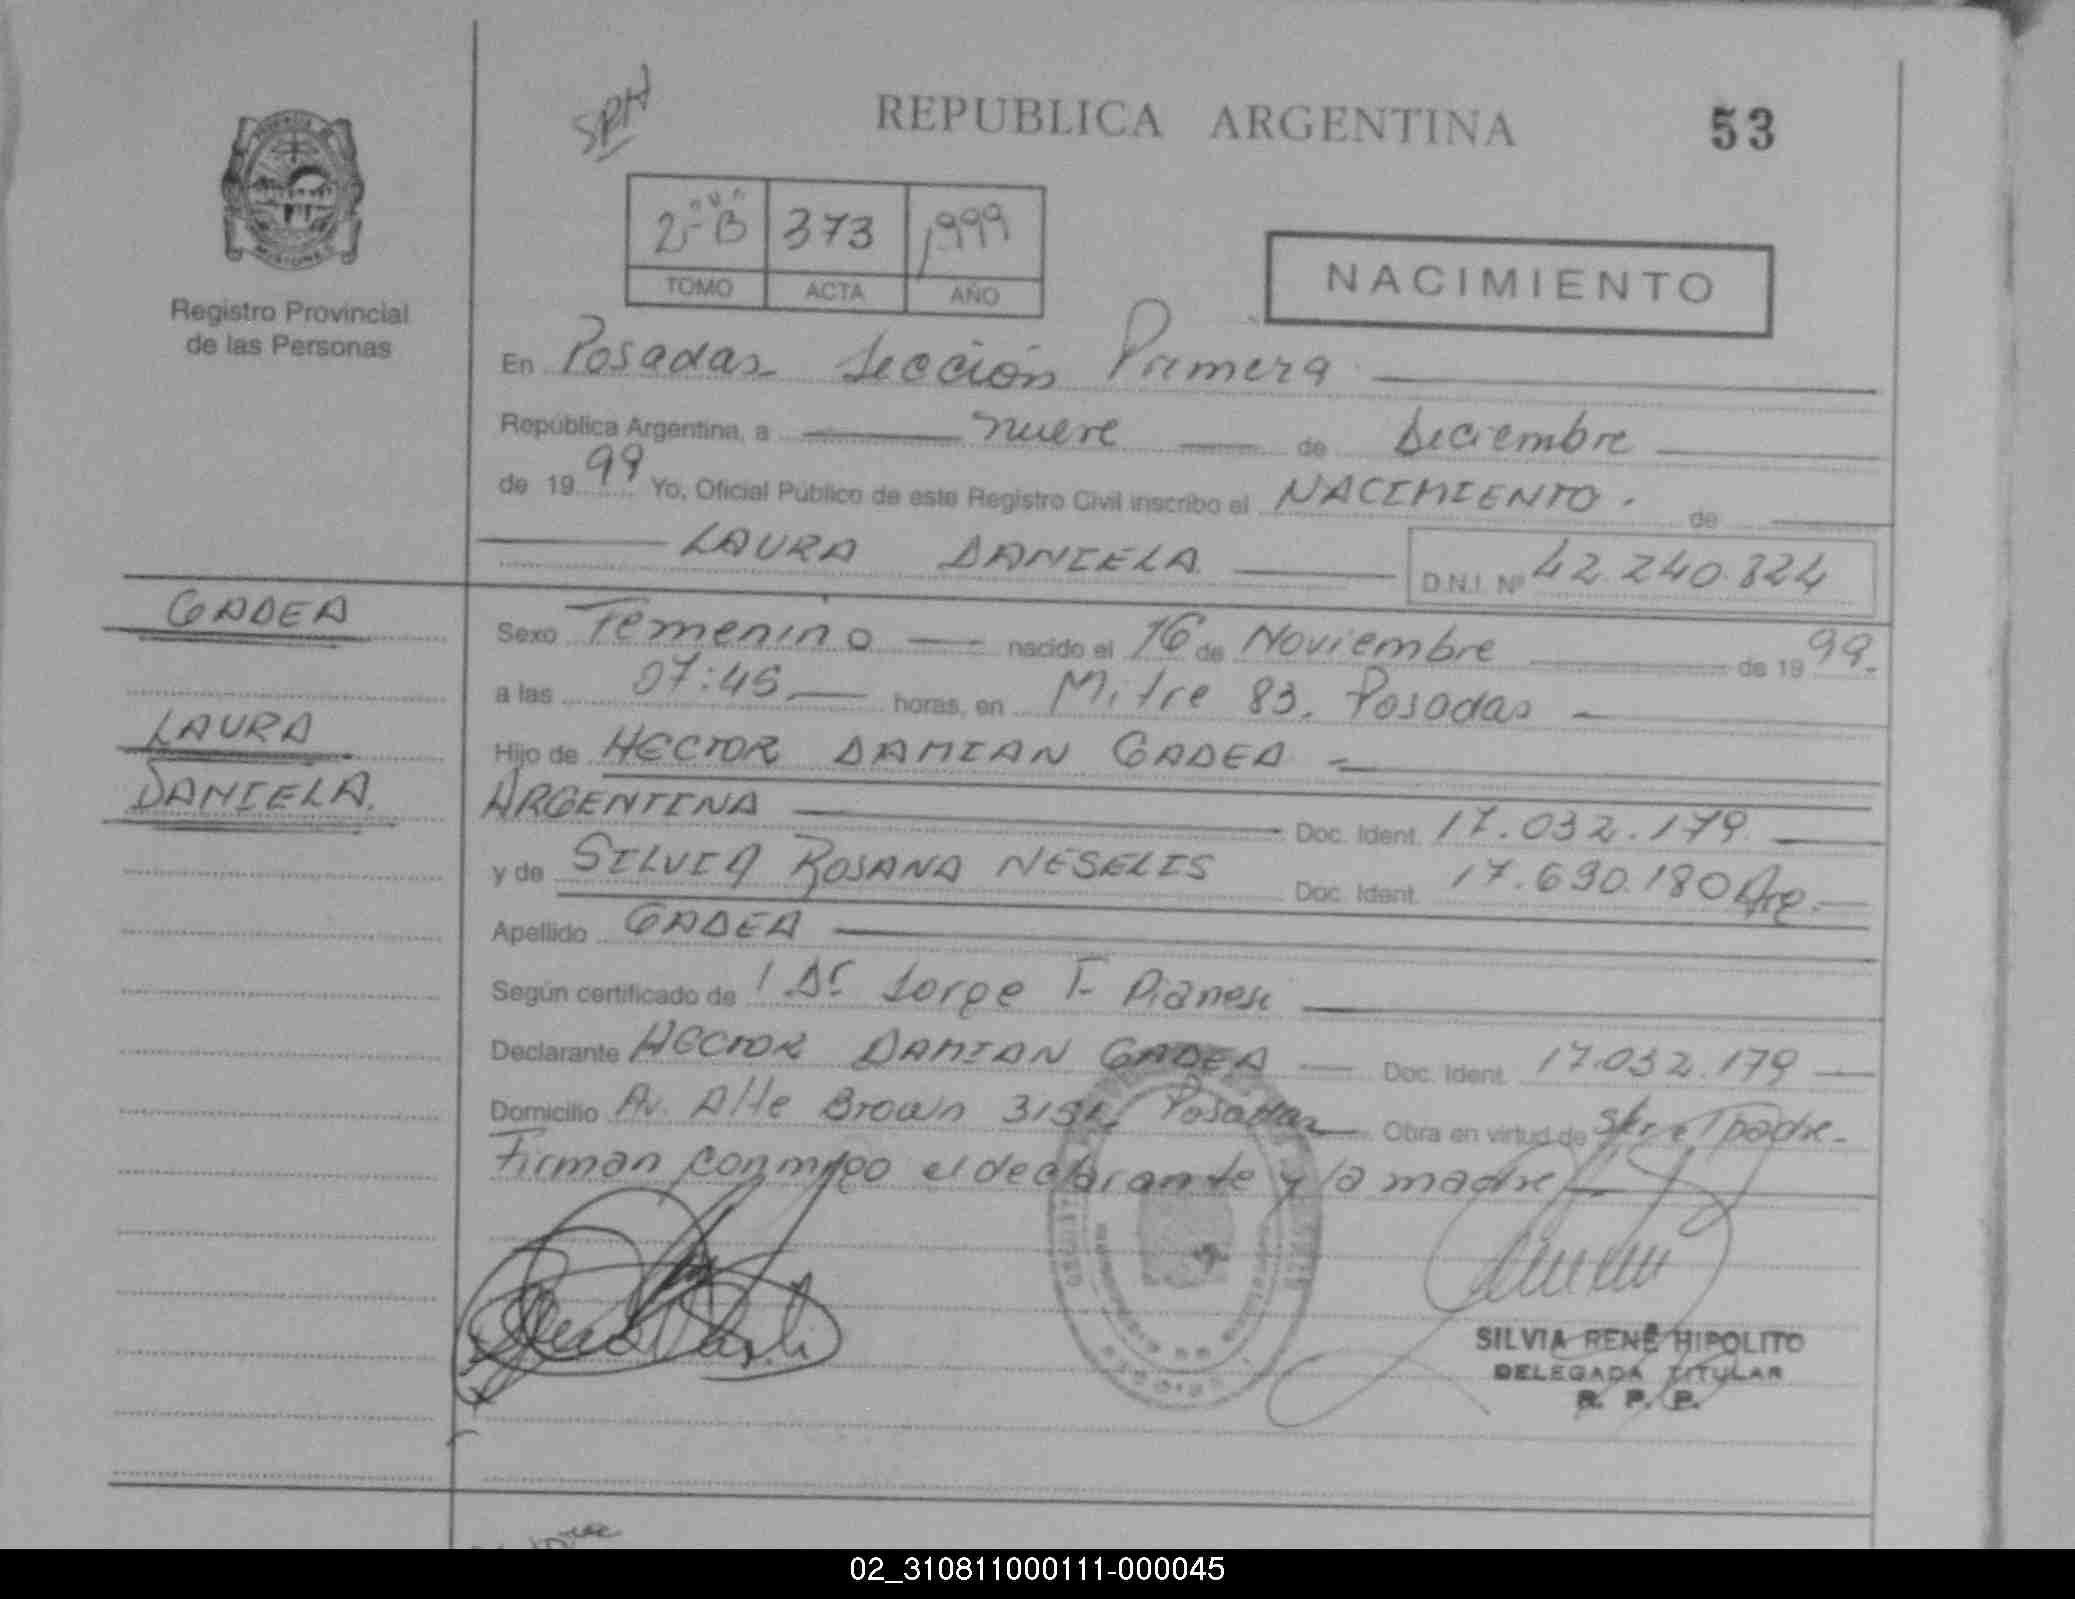 SRH
REPUBLICA ARGENTINA
53
2-B 373 1999
TOMO ACTA AÑO
NACIMIENTO
Registro Provincial
de las Personas
En Posadas Sección Primera
República Argentina, a nueve de Diciembre
de 1999 Yo, Oficial Público de este Registro Civil inscribo el NACIMIENTO. de
LAURA DANIELA D.N.I. Nº 42.240.324
GADEA
LAURA
DANIELA
Sexo Femenino nacido el 16 de Noviembre de 1999.
a las 07:45 horas, en Mitre 83. Posadas
Hijo de HECTOR DAMIAN GADEA
ARGENTINA Doc. Ident. 17.032.179
y de SILVIA ROSANA NESELIS Doc. Ident. 17.690.180 Arg.
Apellido GADEA
Según certificado de 1 Dr Jorge T.
Declarante HECTOR DAMIAN GADEA Doc. Ident. 17.032.179
Domicilio Av. Alte Brown Posadas Obra en virtud de padre
Firman conmigo el declarante y la madre
SILVIA RENÉ HIPOLITO
DELEGADA TITULAR
R. P. P.
02_310811000111-000045